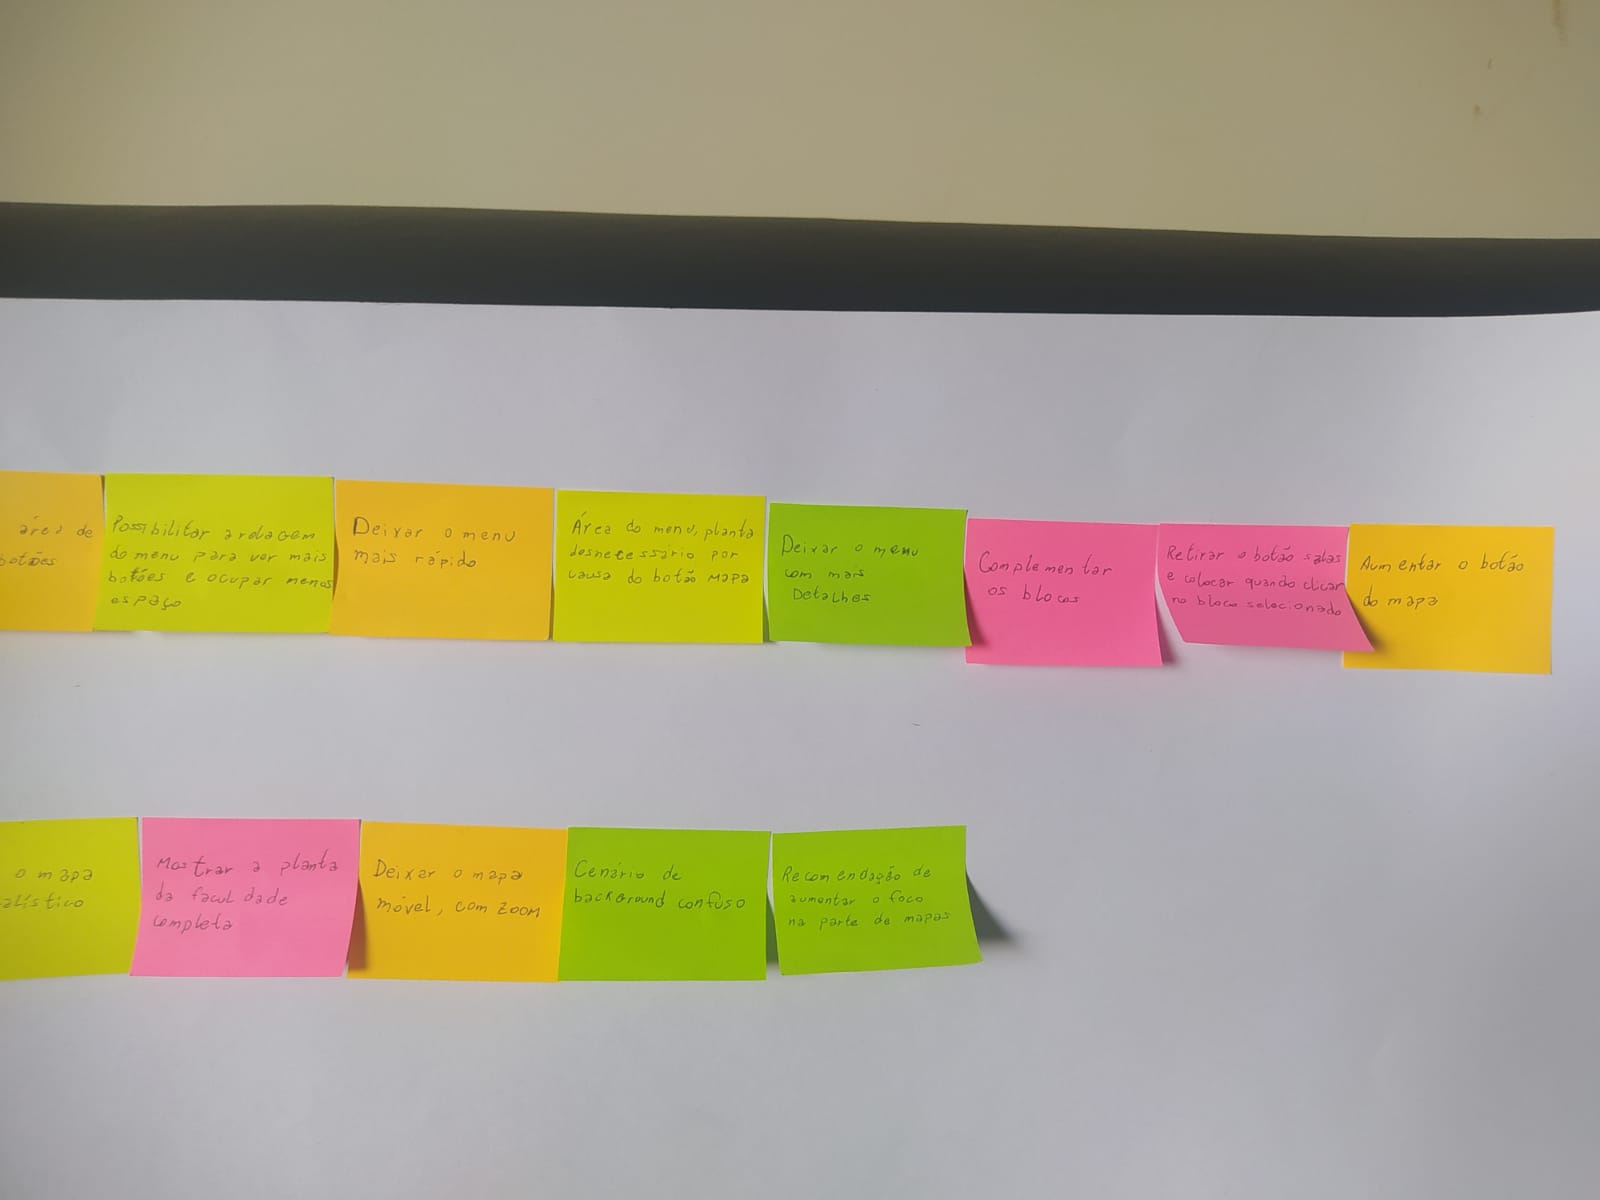 área de
botões
Possibilitar a rolagem
do menu para ver mais
botões e ocupar menos
espaço
Deixar o menu
mais rápido
Área do menu, planta
desnecessário por
causa do botão mapa
Deixar o menu
com mais
Detalhes
Complementar
os blocos
Retirar o botão salas
e colocar quando clicar
no bloco selecionado
Aumentar o botão
do mapa
o mapa
alístico
Mostrar a planta
da faculdade
completa
Deixar o mapa
móvel, com zoom
Cenário de
background confuso
Recomendação de
aumentar o foco
na parte de mapas